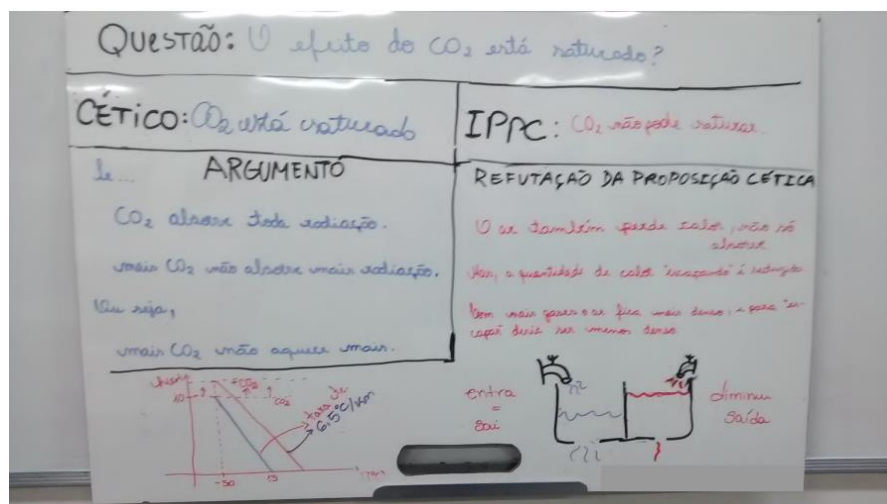 QUESTÃO: O efeito do CO₂ está saturado?
CÉTICO: CO₂ está saturado
IPPC: CO₂ não pode saturar.
Se...
ARGUMENTO
CO₂ absorve toda radiação.
mais CO₂ não absorve mais radiação.
Ou seja,
mais CO₂ não aquece mais.
REFUTAÇÃO DA PROPOSIÇÃO CÉTICA
O ar também perde calor, não só
absorve
Mas, a quantidade de calor "escapando" é
Com mais gases o ar fica mais denso, e para "es-
capar" deve ser menos denso
+CO₂
10
CO₂
taxa de
6,5°C/km
-50
15
entra
=
sai
diminui
saída